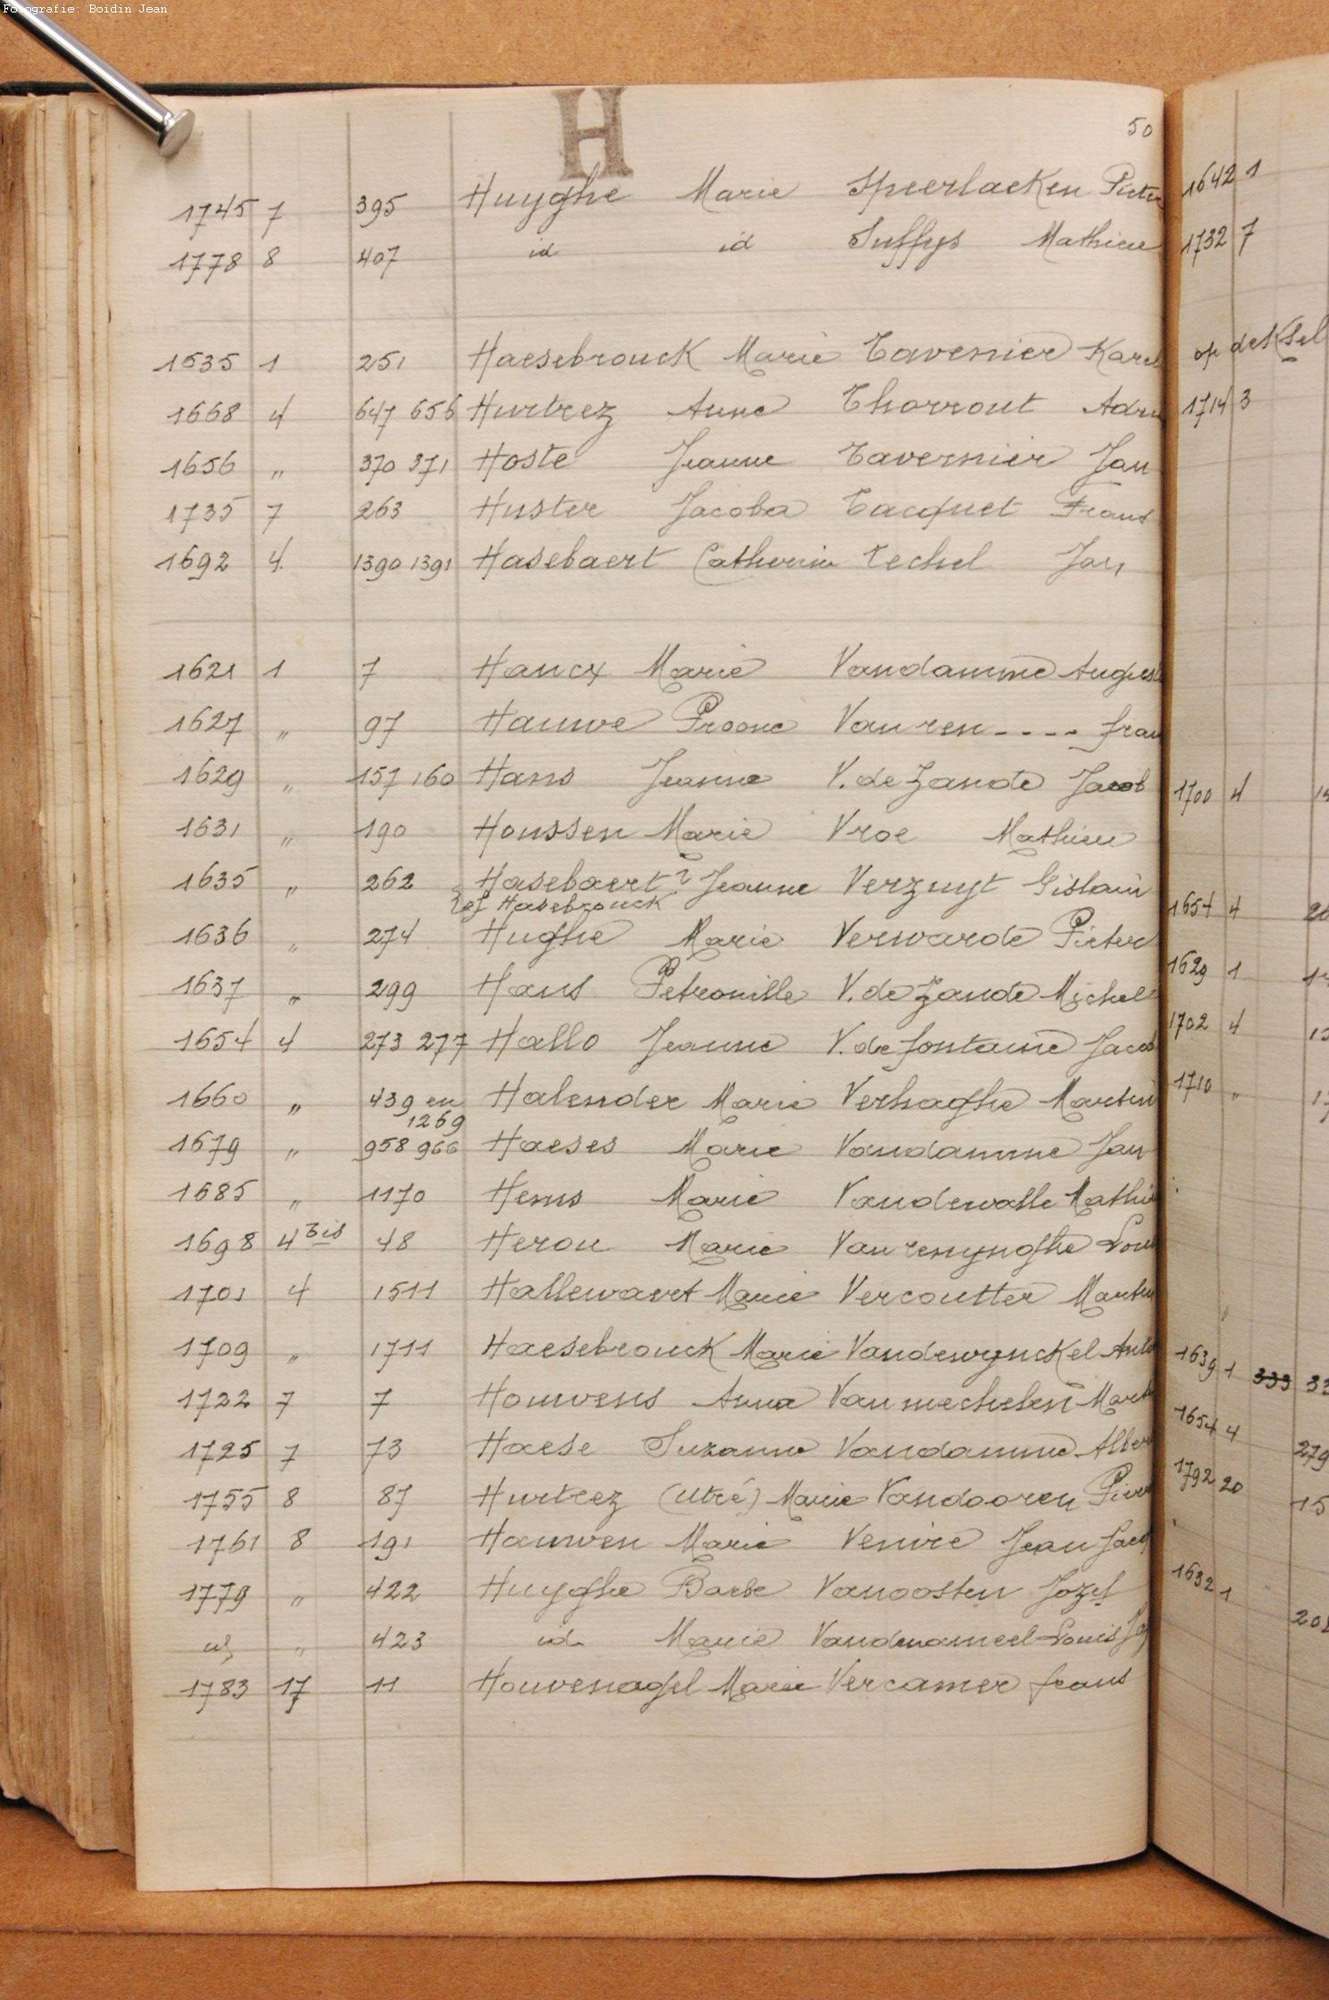 Fotografie: Boidin Jean
H
50
1745 7 395 Huyghe Marie Speerlaeken Pieter
1778 8 407 id id Suffys Mathieu
1635 1 251 Haesebrouck Marie Tavernier Karel
1668 4 647 656 Hurtrez Anne Thorrout Adri
1656 " 370 371 Hoste Jeanne Tavernier Jan
1735 7 263 Huster Jacoba Tacquet Frans
1692 4 1390 1391 Hasebaert Catherine Techel Jan
1621 1 7 Hancx Marie Vandamme August
1627 " 97 Hauwe Vanren---- fran
1629 " 157 160 Hans Jeanne V. de Zande Jacob
1631 " 190 Houssen Marie Vroe Mathieu
1635 " 262 Hasebaert ? Jeanne Verzuyt Gislain
Hasebrouck
1636 " 274 Hughe Marie Verwarde Pieter
1637 " 299 Hans Petronille V. de Zande Michel
1654 4 273 277 Hallo Jeanne V. de fontaine Jacob
1660 " 439 en Halender Marie Verhaghe Martin
1269
1679 " 958 966 Haeses Marie Vandamme Jan
1685 " 1170 Hems Marie Vandewalle Mathi
1698 4 Bis 48 Herou Marie Vanrenynghe Lou
1701 4 1511 Hallewaert Marie Vercoutter Martin
1709 " 1711 Haesebrouck Marie Vandewynckel Anto
1722 7 7 Houwens Anna Vanmechelen Mart
1725 7 73 Haese Suzanne Vandamme Alber
1755 8 87 Hurtrez (Utré) Marie Vandooren Pierre
1761 8 191 Hauwen Marie Venire Jean Jacq
1779 " 422 Huyghe Barbe Vanoosten Jozef
id " 423 id Marie Louis
1783 17 11 Houvenagel Marie Vercamer frans
1642 1
1732 7
op deksel
1714 3
1700 4
1654 4
1629 1
1702 4
1710 "
1639 1 333
1654 4 279
1792 20
1632 1